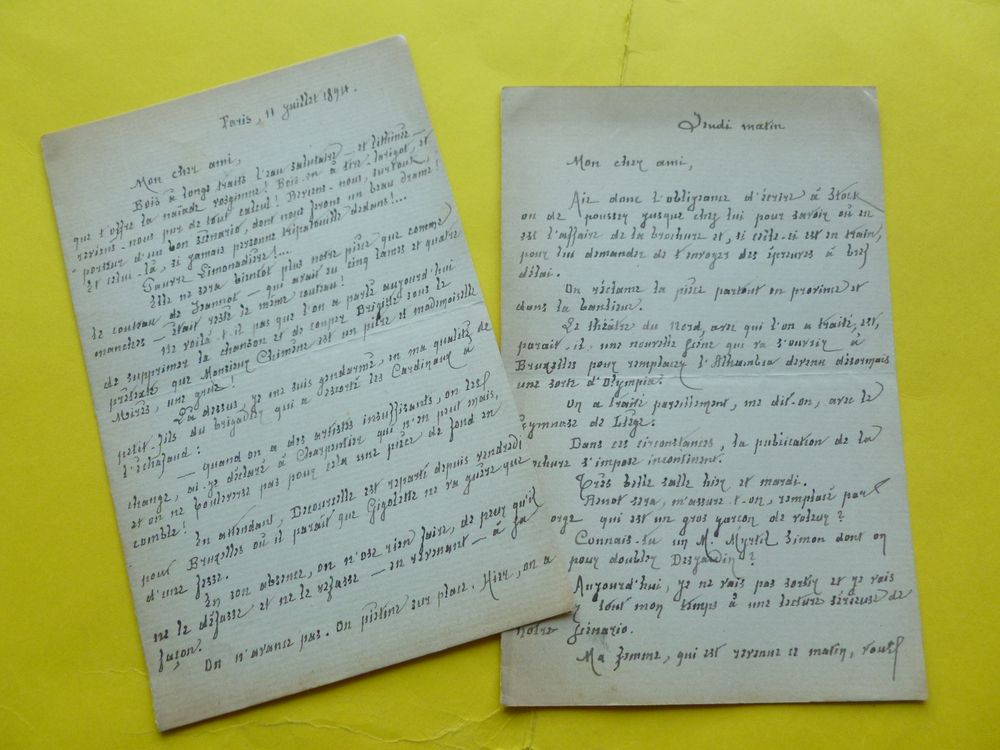 Paris, 11 juillet 1894.
Mon cher ami,
Bois à longs traits l'eau salutaire — et lithinée —
que t'offre la naïade vosgienne! Bois-en à tire-larigot, et
reviens-nous pur de tout calcul! Reviens-nous, surtout,
porteur d'un bon scénario, dont nous ferons un beau drame!
Et celui-là, si jamais personne tripatouille dedans!...
Pauvre Limonadière!...
Elle ne sera bientôt plus notre pièce que comme
le couteau de Jeannot — qui avait eu cinq lames et quatre
manches — était resté le même couteau!
Ne voilà-t-il pas que l'on a parlé aujourd'hui
de supprimer la chanson et de couper Brigitte sous le
prétexte que Monsieur Chimène est un pitre et mademoiselle
Mériès, une grue!
Là-dessus, je me suis gendarmé, en ma qualité de
petit-fils du brigadier qui a escorté les Cardinaux à
l'échafaud:
— quand on a des artistes insuffisants, on les
change, ai-je déclaré à Charpentier qui n'en peut mais,
et on ne bouleverse pas pour cela une pièce de fond en
comble!
En attendant, Decourcelle est reparti depuis vendredi
pour Bruxelles où il paraît que Gigolette ne va guère que
d'une fesse.
En son absence, on n'ose rien faire, de peur qu'il
ne le défasse et ne le refasse — en revenant — à sa
façon.
On n'avance pas. On piétine sur place. Hier, on a
Jeudi matin
Mon cher ami,
Aie donc l'obligeance d'écrire à Stock
ou de pousser jusque chez lui pour savoir où en
est l'affaire de la brochure et, si celle-ci est en train,
pour lui demander de t'envoyer des épreuves à bref
délai.
On réclame la pièce partout en province et
dans la banlieue.
Le théâtre du Nord, avec qui l'on a traité, est,
paraît-il, une nouvelle scène qui va s'ouvrir à
Bruxelles pour remplacer l'Alhambra devenu désormais
une sorte d'Olympia.
On a traité pareillement, me dit-on, avec le
Gymnase de Liège.
Dans ces circonstances, la publication de la
brochure s'impose incontinent.
Très belle salle hier et mardi.
Renot sera, m'assure-t-on, remplacé par
orge qui est un gros garçon de valeur?
Connais-tu un M. Myrtil Simon dont on
pour doubler Desjardin?
Aujourd'hui, je ne vais pas sortir et je vais
tout mon temps à une lecture sérieuse de
notre scénario.
Ma femme, qui est revenue ce matin, vous